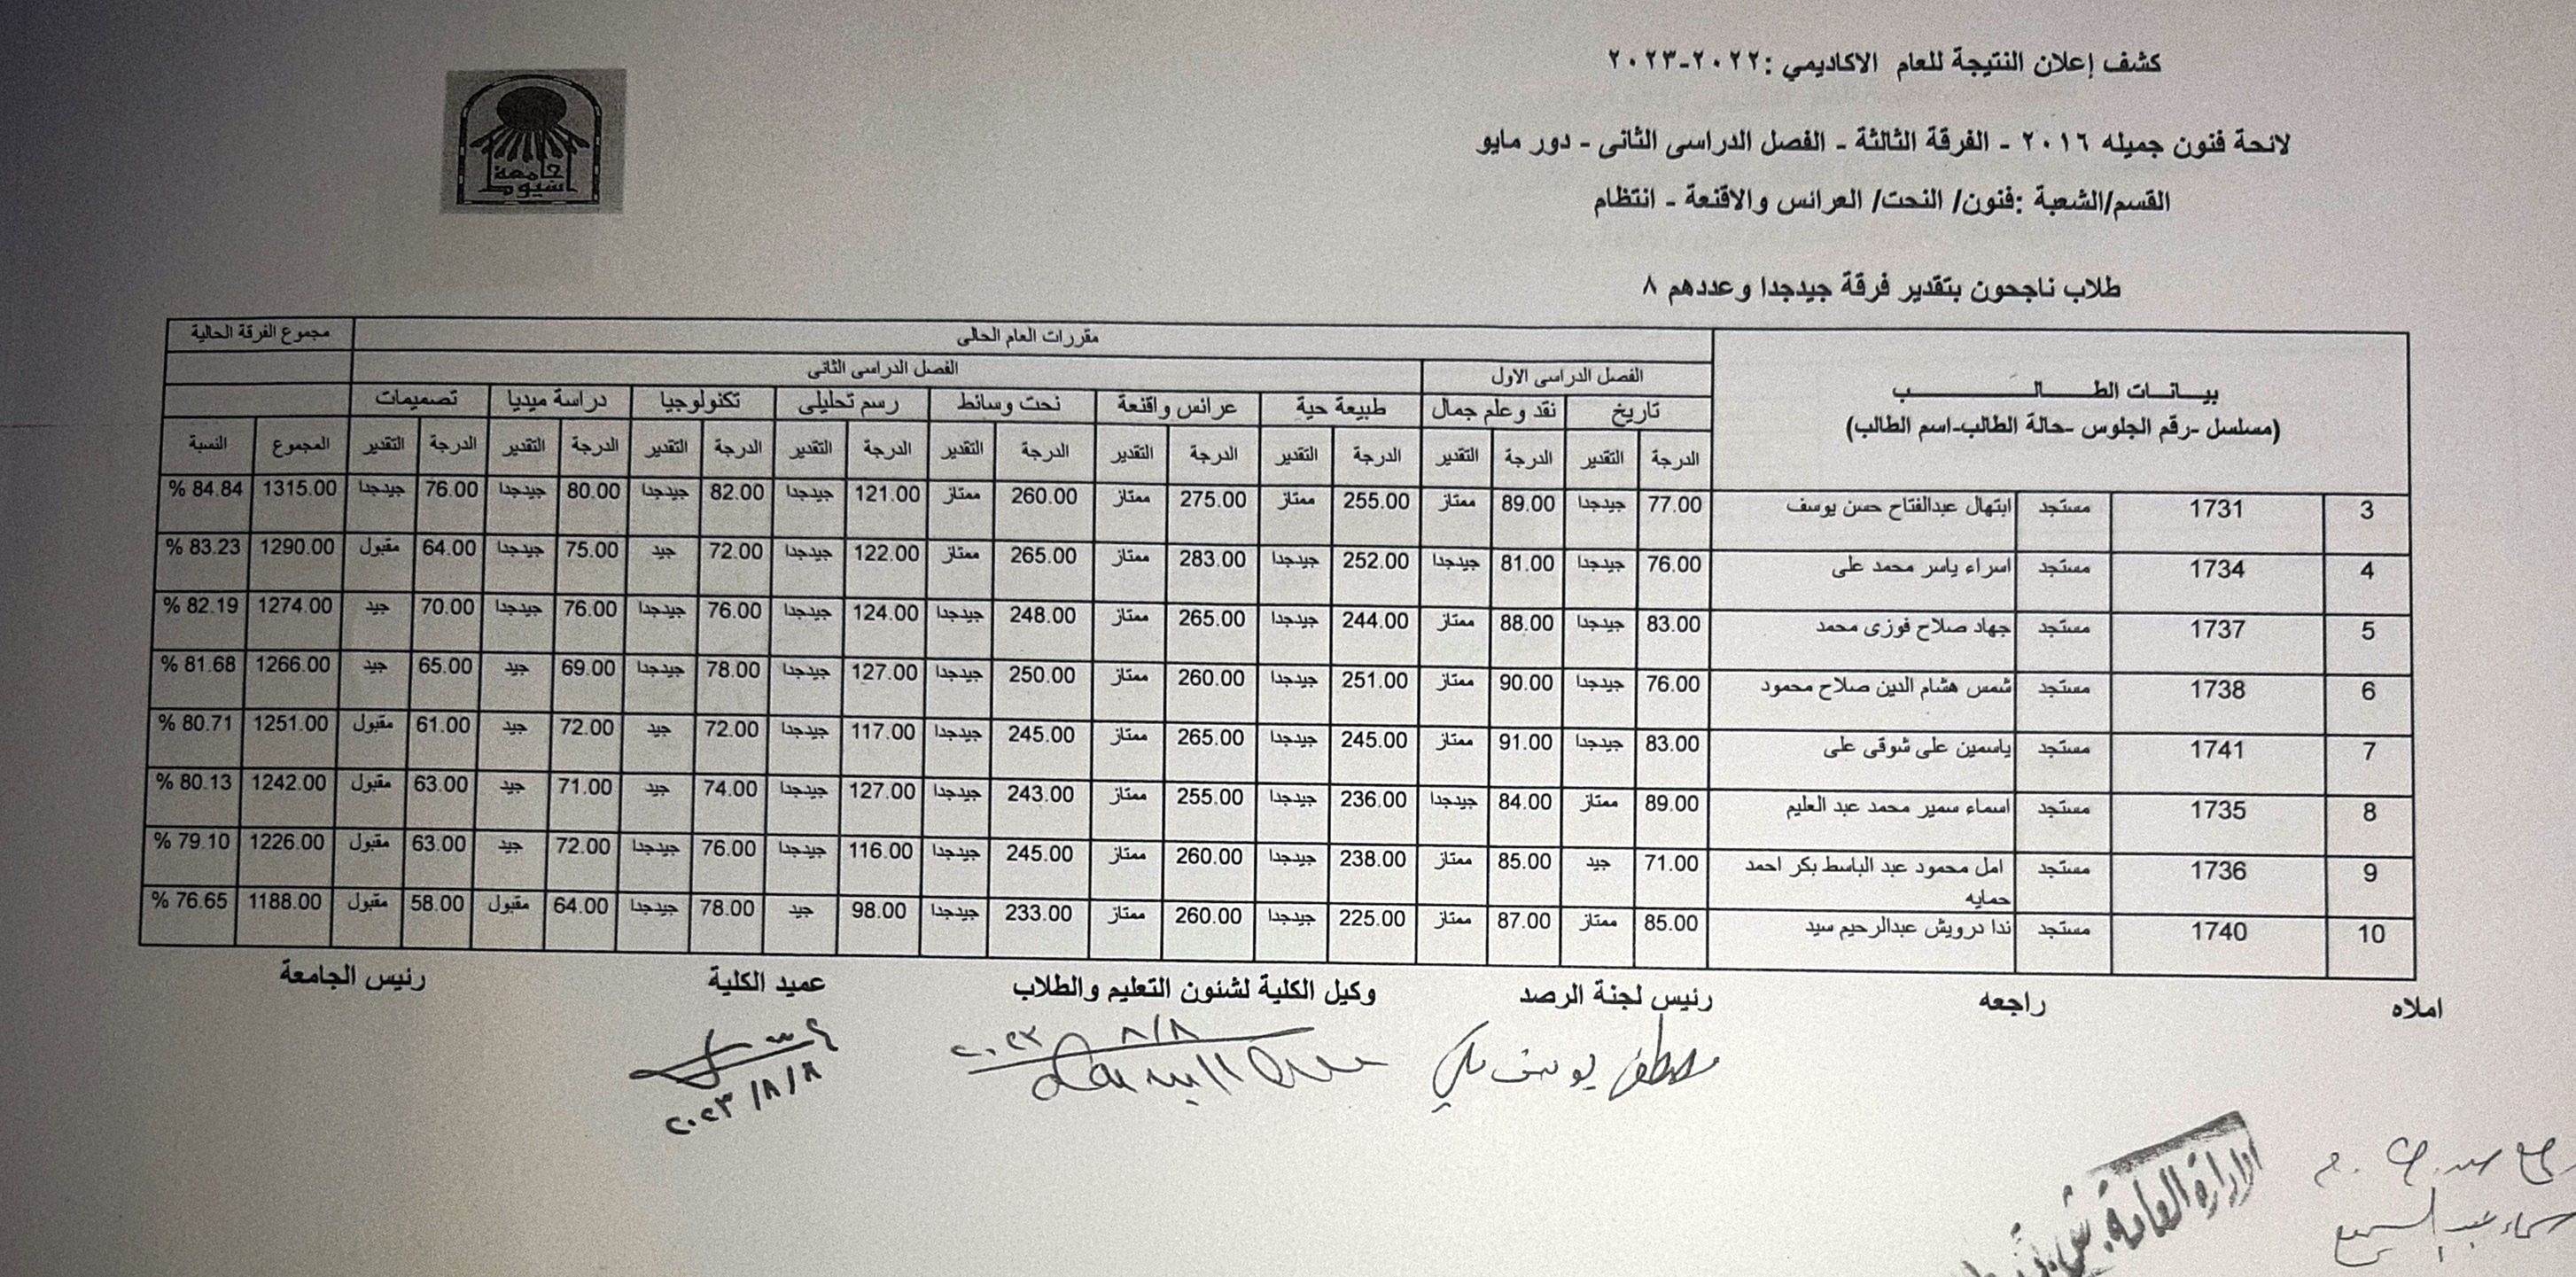 كشف إعلان النتيجة للعام الاكاديمي :٢٠٢٢-٢٠٢٣
جامعة أسيوط
لائحة فنون جميله ٢٠١٦ - الفرقة الثالثة - الفصل الدراسى الثانى - دور مايو
القسم/الشعبة :فنون/ النحت/ العرائس والاقنعة - انتظام
طلاب ناجحون بتقدير فرقة جيدجدا وعددهم ٨
بيانات الطالب مقررات العام الحالى مجموع الفرقة الحالية
(مسلسل -رقم الجلوس -حالة الطالب-اسم الطالب)
الفصل الدراسى الاول الفصل الدراسى الثانى
تاريخ نقد وعلم جمال طبيعة حية عرائس واقنعة نحت وسائط رسم تحليلى تكنولوجيا دراسة ميديا تصميمات
الدرجة التقدير الدرجة التقدير الدرجة التقدير الدرجة التقدير الدرجة التقدير الدرجة التقدير الدرجة التقدير الدرجة التقدير الدرجة التقدير المجموع النسبة
3 1731 مستجد ابتهال عبدالفتاح حسن يوسف 77.00 جيدجدا 89.00 ممتاز 255.00 ممتاز 275.00 ممتاز 260.00 ممتاز 121.00 جيدجدا 82.00 جيدجدا 80.00 جيدجدا 76.00 جيدجدا 1315.00 84.84 %
4 1734 مستجد اسراء ياسر محمد على 76.00 جيدجدا 81.00 جيدجدا 252.00 جيدجدا 283.00 ممتاز 265.00 ممتاز 122.00 جيدجدا 72.00 جيد 75.00 جيدجدا 64.00 مقبول 1290.00 83.23 %
5 1737 مستجد جهاد صلاح فوزى محمد 83.00 جيدجدا 88.00 ممتاز 244.00 جيدجدا 265.00 ممتاز 248.00 جيدجدا 124.00 جيدجدا 76.00 جيدجدا 76.00 جيدجدا 70.00 جيد 1274.00 82.19 %
6 1738 مستجد شمس هشام الدين صلاح محمود 76.00 جيدجدا 90.00 ممتاز 251.00 جيدجدا 260.00 ممتاز 250.00 جيدجدا 127.00 جيدجدا 78.00 جيدجدا 69.00 جيد 65.00 جيد 1266.00 81.68 %
7 1741 مستجد ياسمين على شوقى على 83.00 جيدجدا 91.00 ممتاز 245.00 جيدجدا 265.00 ممتاز 245.00 جيدجدا 117.00 جيدجدا 72.00 جيد 72.00 جيد 61.00 مقبول 1251.00 80.71 %
8 1735 مستجد اسماء سمير محمد عبد العليم 89.00 ممتاز 84.00 جيدجدا 236.00 جيدجدا 255.00 ممتاز 243.00 جيدجدا 127.00 جيدجدا 74.00 جيد 71.00 جيد 63.00 مقبول 1242.00 80.13 %
9 1736 مستجد امل محمود عبد الباسط بكر احمد 71.00 جيد 85.00 ممتاز 238.00 جيدجدا 260.00 ممتاز 245.00 جيدجدا 116.00 جيدجدا 76.00 جيدجدا 72.00 جيد 63.00 مقبول 1226.00 79.10 %
حمايه
10 1740 مستجد ندا درويش عبدالرحيم سيد 85.00 ممتاز 87.00 ممتاز 225.00 جيدجدا 260.00 ممتاز 233.00 جيدجدا 98.00 جيد 78.00 جيدجدا 64.00 مقبول 58.00 مقبول 1188.00 76.65 %
املاه راجعه رئيس لجنة الرصد وكيل الكلية لشئون التعليم والطلاب عميد الكلية رئيس الجامعة
مصطفى يوسف
٨/٨ ٢٠٢٣
٢٠٢٣/٨/٨
الإدارة العامة